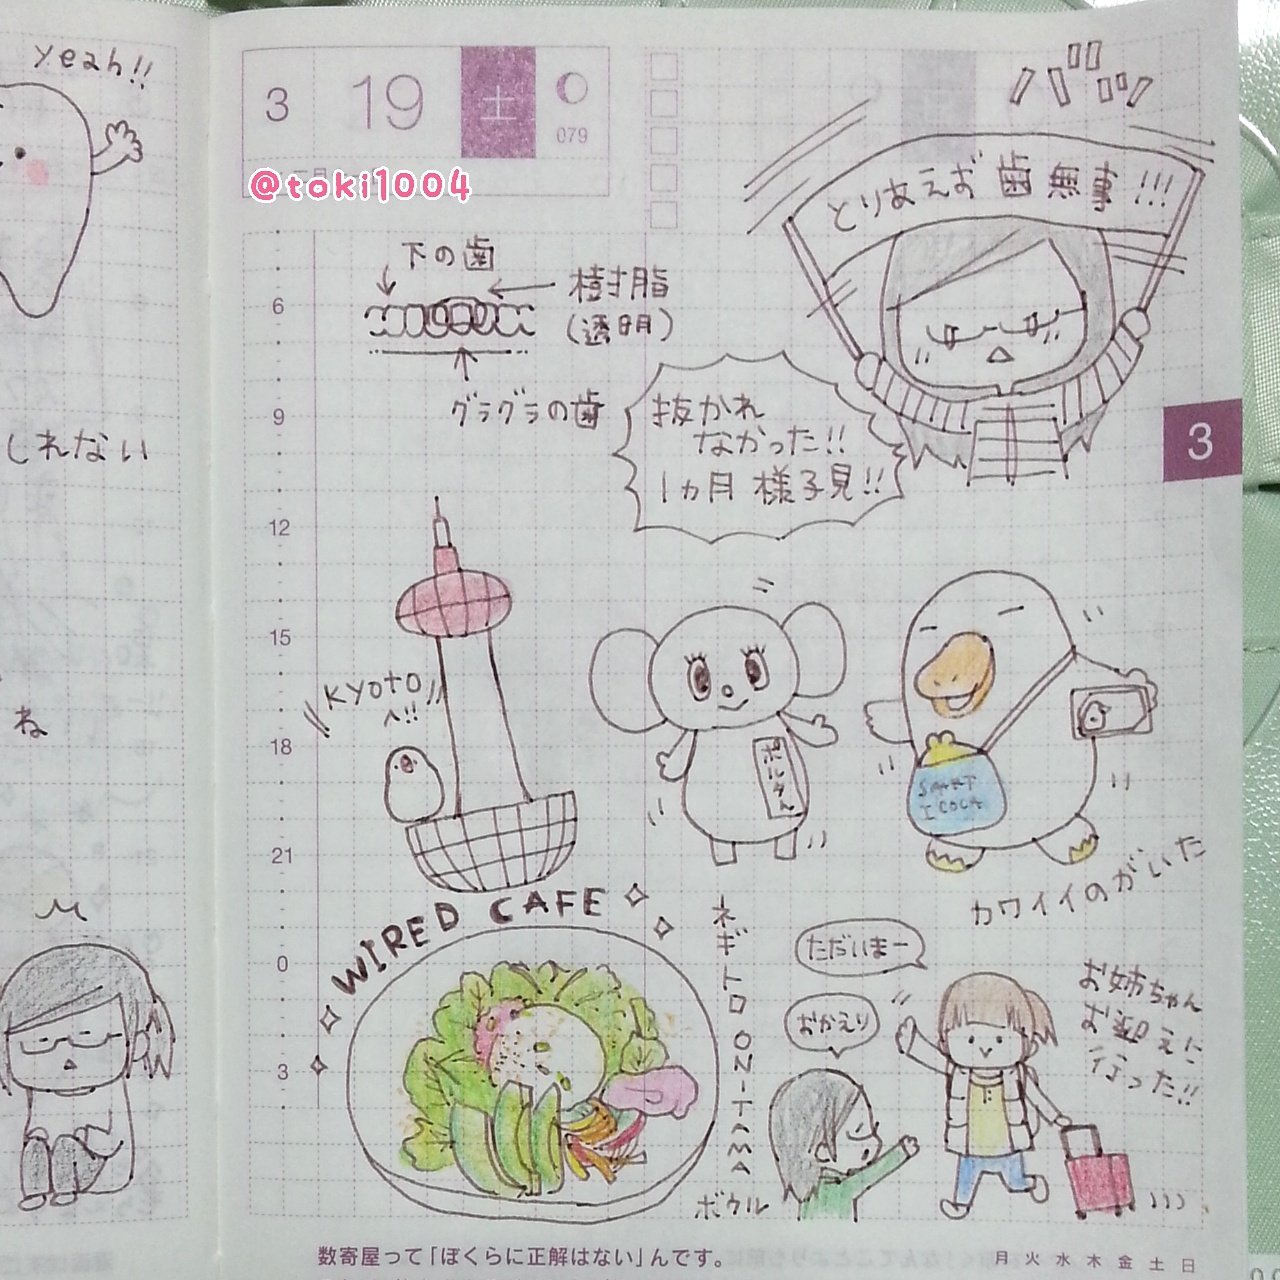 yeah!!
しれない
ね
3 19 土
079
@toki1004
バババッ
とりあえず歯無事!!!
下の歯
樹脂
(透明)
グラグラの歯
抜かれ
なかった!!
1ヵ月様子見!!
3
6
9
12
15
18
21
0
3
KYOTO
へ!!
ポルタん
SMART
ICOCA
カワイイのがいた
WIRED CAFE
ネギトロ ON-TAMA
ボウル
ただいまー
おかえり
お姉ちゃん
お迎えに
行った!!
数寄屋って「ぼくらに正解はない」んです。
月 火 水 木 金 土 日